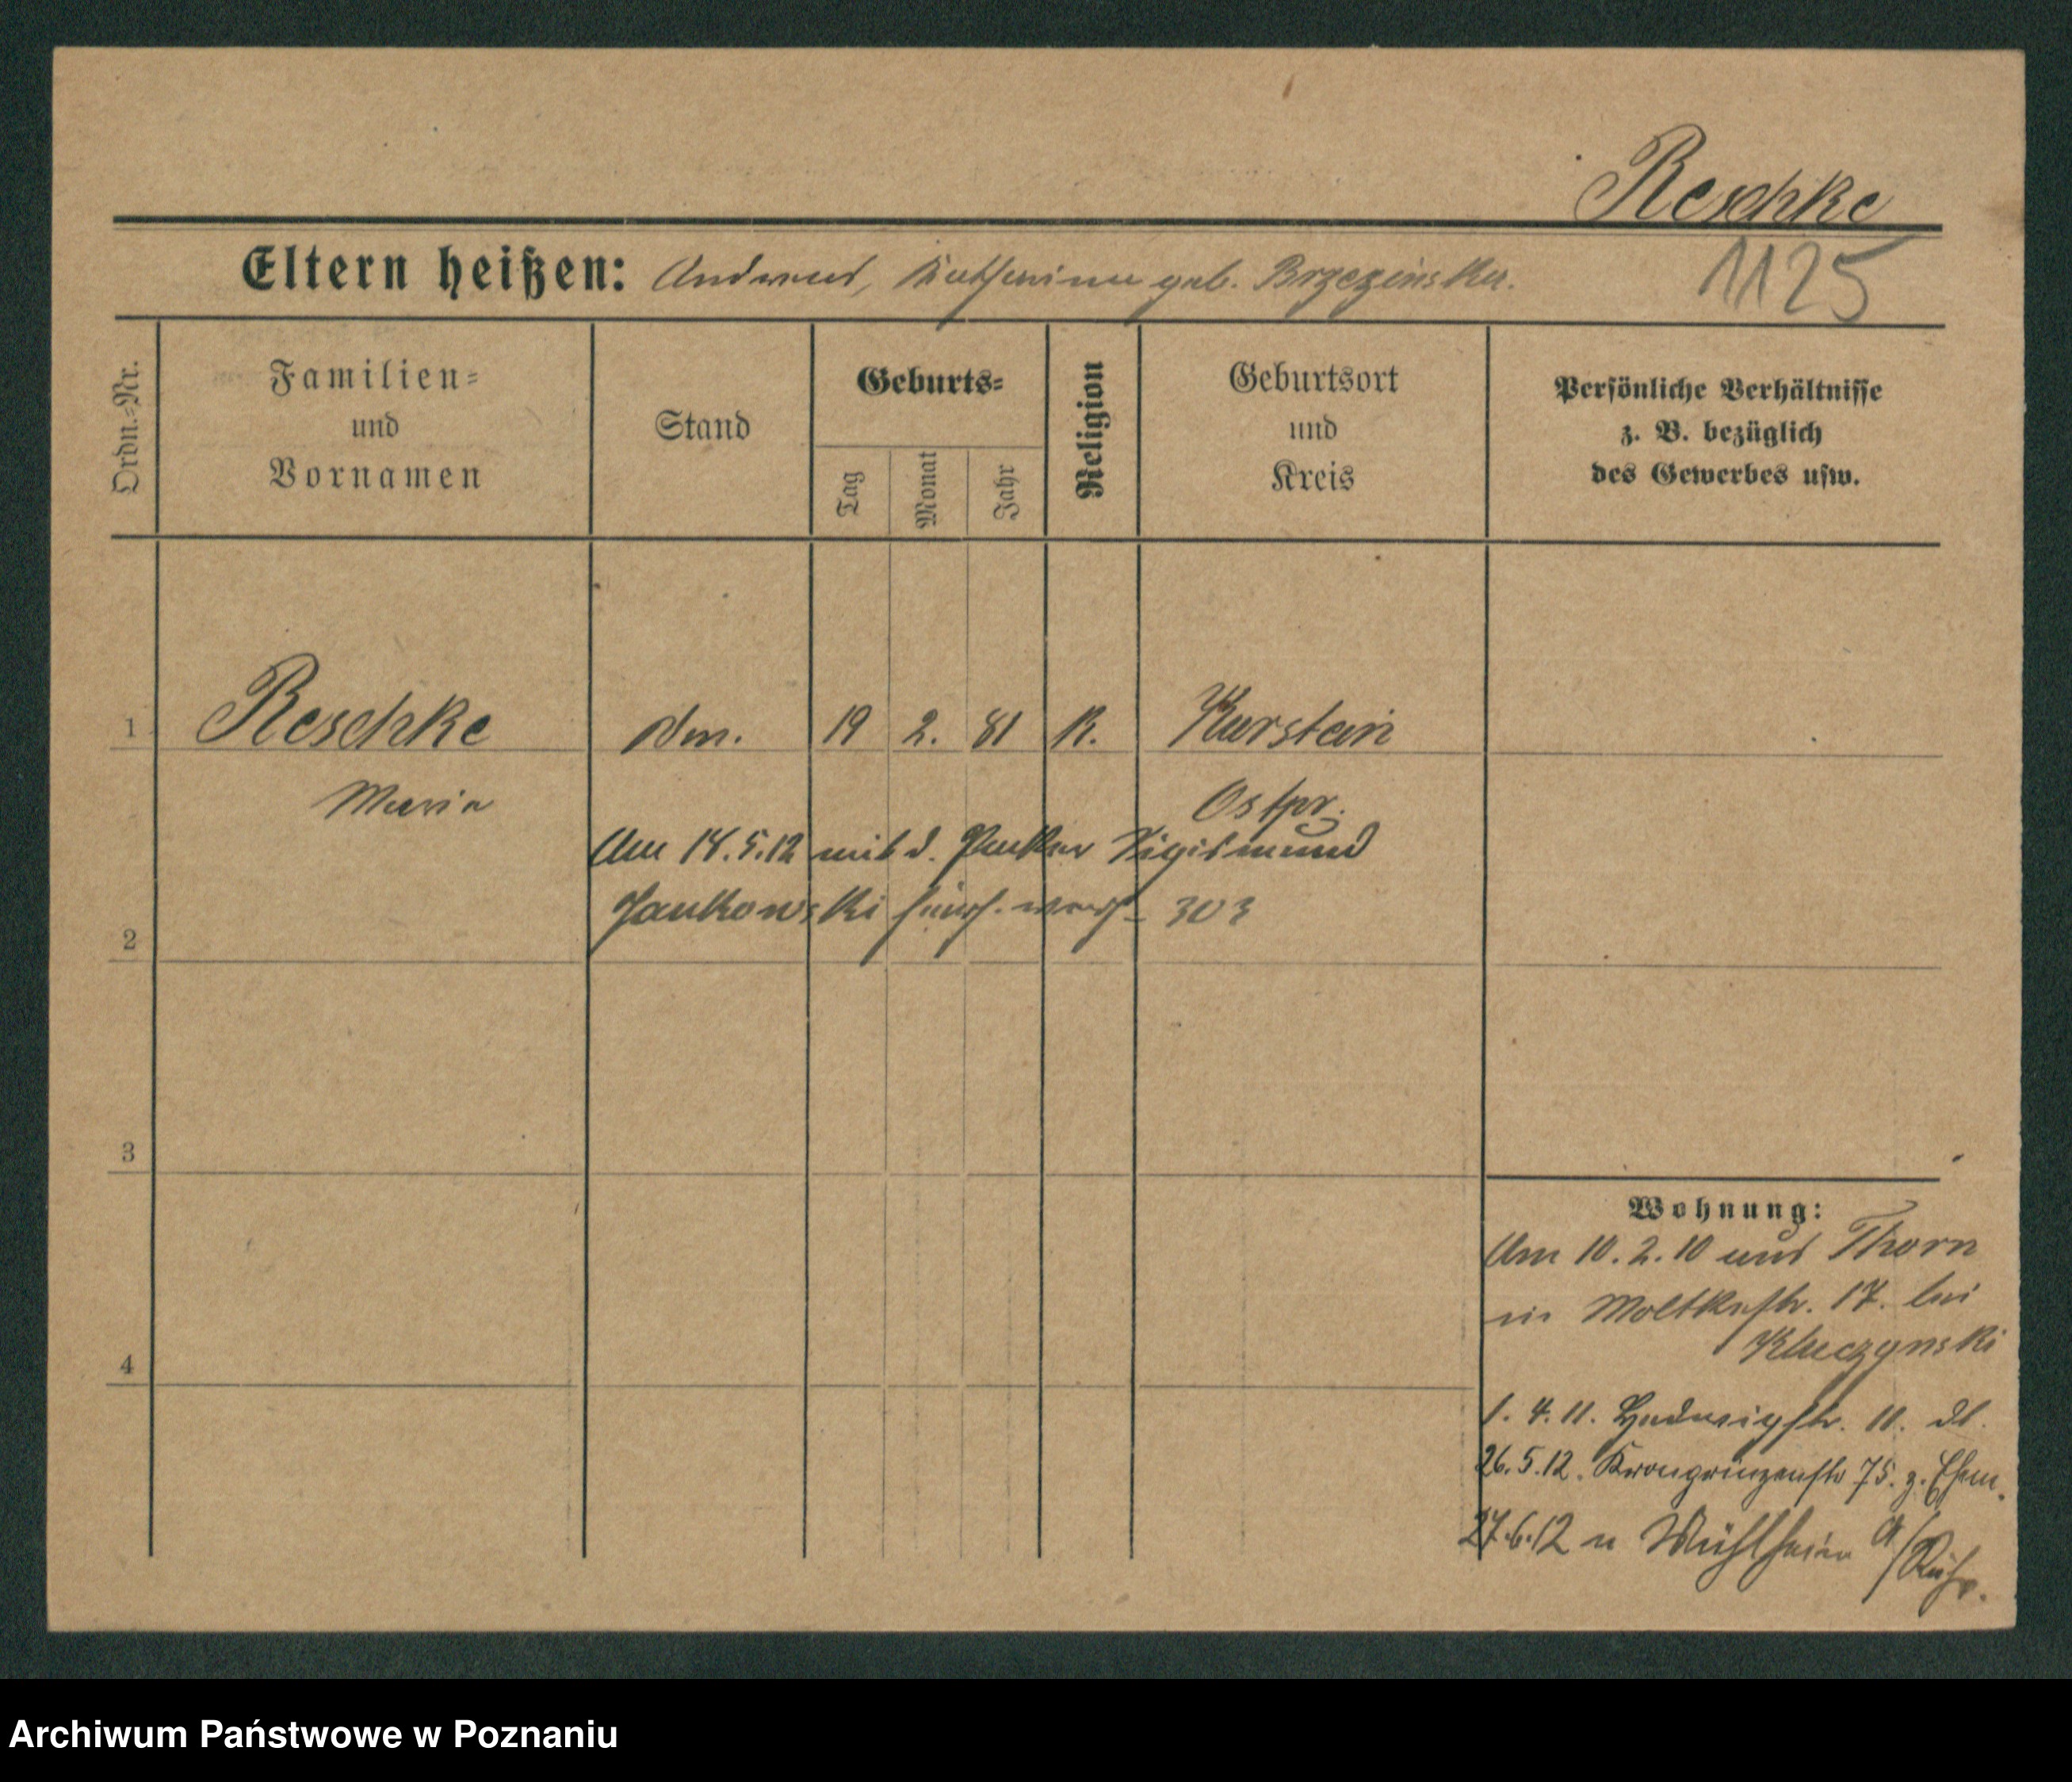 Reschke
Eltern heißen: Andreas, Katharina geb. Brzezinska.
1125
Ordn.-Nr.
Familien-
und
Vornamen
Stand
Geburts-
Tag
Monat
Jahr
Religion
Geburtsort
und
Kreis
Persönliche Verhältnisse
z. B. bezüglich
des Gewerbes usw.
1 Reschke 19 2. 81 K. Kurstein
Maria Ostpr.
Am 14.5.12 mit d. Sigismund
2 Jankowski 303
3
4
Wohnung:
Am 10.2.10 aus Thorn
in Moltkestr. 17. bei
Kluczynski
1. 4. 11. Hedwigstr. 11. dt.
26.5.12. Kronprinzenstr 75. z. Ehem.
27.6.12 n Mühlheim a/Ruhr.
Archiwum Państwowe w Poznaniu